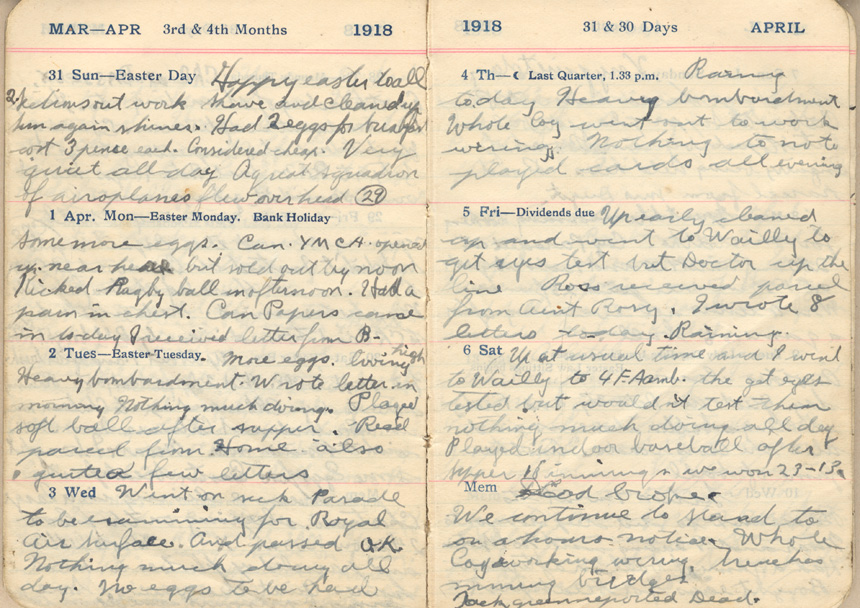 MAR—APR 3rd & 4th Months 1918
31 Sun—Easter Day Happy easter to all
2 sections out work shave and cleaned up
him again shines. Had 2 eggs for breakfast
cost 3 pense each. Considered cheap. Very
quiet all day A great squadron
of airoplanes flew overhead (29)
1 Apr. Mon—Easter Monday. Bank Holiday
Some more eggs. Can. YMCA. opened
up near here but sold out by noon
Kicked Rugby ball in afternoon. Had a
pain in chest. Can Papers came
in to-day I received letter from B-
2 Tues—Easter Tuesday. More eggs. living high
Heavy bombardment. Wrote letter in
morning Nothing much doing. Played
soft ball after supper. Recd
parcel from Home also
quite a few letters
3 Wed Went on sick Parade
to be examining for Royal
Air surface. And passed O.K.
Nothing much doing all
day. No eggs to be had
1918 31 & 30 Days APRIL
4 Th—☾ Last Quarter, 1.33 p.m. Raining
today Heavy bombardment.
Whole Coy went out to work
wering. Nothing to note
played cards all evening
5 Fri—Dividends due Up early cleaned
up and went to Wailly to
get eyes test but Doctor up the
line Ross received parcel
from Aunt Rosy. I wrote 8
letters to-day. Raining.
6 Sat Up at usual time and I went
to Wailly to 4 F. Aamb. the get eyes
tested but wouldn't test them
nothing much doing all day
Played indoor baseball after
supper 18 innings we won 23-13.
Mem Dead broke.
We continue to stand to
on a hours notice. Whole
Coy working wering, trenches
mining bridges
Jack green reported Dead.